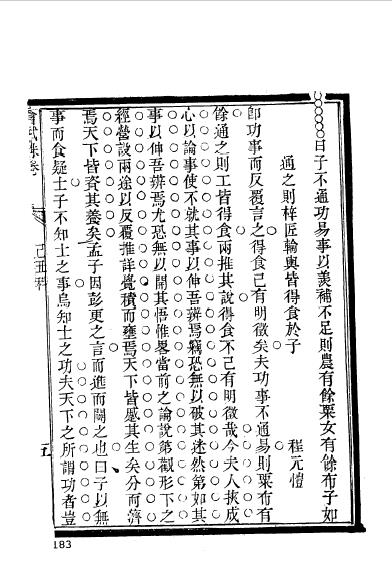 曰子不通功易事以羨補不足則農有餘粟女有餘布子如
通之則梓匠輪輿皆得食於子
程元愷
即功事而反覆言之得食己有明徵矣夫功事不通易則粟布有
餘通之則工皆得食兩推其說得食不已有明徵哉今夫人挾成
心以論事使不就其事以伸吾辨焉竊恐無以破其迷然第如其
事以伸吾辨焉尤恐無以開其悟惟畧當前之論說第觀形下之
經營設兩途以反覆推詳覺積而壅焉天下皆感其生矣分而濟
焉天下皆資其養矣孟子因彭更之言而進而闢之也曰子以無
事而食疑士子不知士之事烏知士之功夫天下之所謂功者豈
會試硃卷
己丑科
183